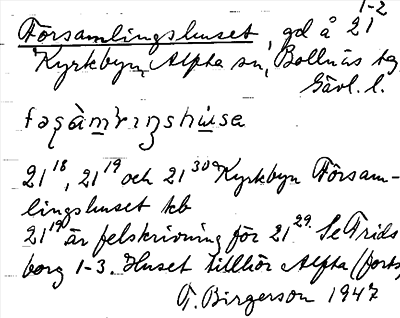 Församlingshuset, gd å 21 1-2
Kyrkbyn, Alfta sn, Bollnäs tg
Gävl. l.
21 18, 21 19 och 21 30a Kyrkbyn Försam-
lingshuset kb
21 19 är felskrivning för 21 29. Se Frids
borg 1-3. Huset tillhör Alfta (forts)
T. Birgerson 1947